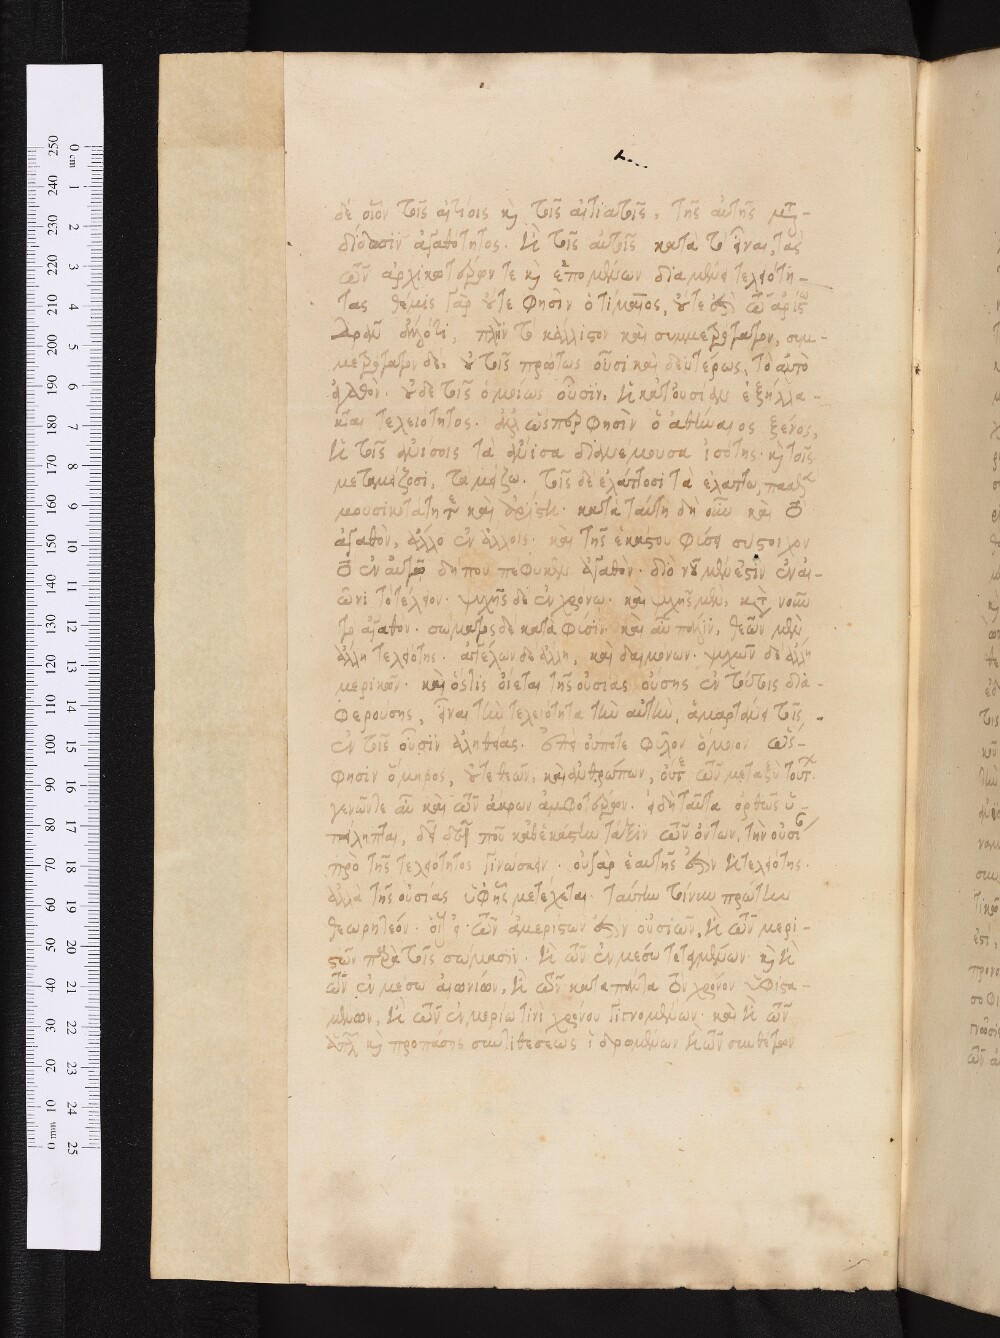 δὲ οἷον τοῖς αἰτίοις καὶ τοῖς αἰτιατοῖς, τῆς αὐτῆς
διδόασιν ἀγαθότητος. ἢ τοῖς αὐτοῖς κατὰ τὸ εἶναι, τὰς
τῶν ἀρχικωτέρων τε καὶ ἑπομένων διαμένει τελειότη-
τας θέμις γὰρ οὔτε φησὶν ὁ τίμαιος, οὔτε τῷ ἀρίστῳ
δρᾶν, πλὴν τὸ κάλλιστον καὶ συμμετρότατον, συμ-
μετρότατον δὲ, οὐ τοῖς πρώτως οὖσι καὶ δευτέρως, τὸ αὐτὸ
ἀγαθόν. οὐδὲ τοῖς ὁμοίως οὖσιν, ἢ κατ' οὐσίαν ἐξηλλα-
τελειότητος. ἀλλ' ὥσπερ φησὶν ὁ ἀθηναῖος ξένος,
ἡ τοῖς ἀνίσοις τὰ ἄνισα διανέμουσα ἰσότης. καὶ τοῖς
μὲν μείζοσι, τὰ μείζω. τοῖς δὲ ἐλάττοσι τὰ ἐλάττω, πασῶν
μουσικωτάτη καὶ ἀρίστη. κατὰ ταύτη δὴ οὖν καὶ τὸ
ἀγαθὸν, ἄλλο ἐν ἄλλοις. καὶ τῆς ἑκάστου φύσει σύστοιχον
τὸ ἐν αὐτῷ δήπου πεφυκὸς ἀγαθόν. διὸ νοῦ μὲν ἐστὶν ἐν αἰ-
ῶνι τὸ τέλειον. ψυχῆς δὲ ἐν χρόνῳ. καὶ ψυχῆς μὲν, κατὰ νοῦν
τὸ ἀγαθὸν. σώματος δὲ κατὰ φύσιν. καὶ αὖ πάλιν, θεῶν μὲν
ἄλλη τελειότης. ἀγγέλων δὲ ἄλλη, καὶ δαιμόνων. ψυχῶν δὲ ἄλλη
μερικῶν. καὶ ὅστις οἴεται τῆς οὐσίας οὔσης ἐν τούτοις δια-
φερούσης, εἶναι τὴν τελειότητα τὴν αὐτὴν, ἁμαρτάνει τῆς,
ἐν τοῖς οὖσιν ἀληθείας. ἐπεὶ οὔποτε φῦλον ὅμοιον ὥς
φησιν ὅμηρος, οὔτε θεῶν, καὶ ἀνθρώπων, οὔτε τῶν μεταξὺ τούτων
γενῶν τε αὖ καὶ τῶν ἄκρων ἀμφοτέρων. εἰ δὴ ταῦτα ὀρθῶς ὑ-
πείληπται, δεῖ που καθ' ἑκάστην τάξιν τῶν ὄντων, τὴν οὐσίαν
πρὸ τῆς τελειότητος γινώσκειν. οὐ γὰρ ἑαυτῆς ἐστὶν ἡ τελειότης.
ἀλλὰ τῆς οὐσίας ὑφ' ἧς μετέχεται. ταύτην τοίνυν πρώτην
θεωρητέον. εἴτε τῶν ἀμερίστων ἐστὶν οὐσιῶν, ἢ τῶν μερι-
στῶν περὶ τοῖς σώμασιν. ἢ τῶν ἐν μέσῳ τεταγμένων. καὶ ἢ
τῶν ἐν μέσῳ αἰωνίων, ἢ τῶν κατὰ πάντα τὸν χρόνον ὑφιστα-
μένων, ἢ τῶν ἐν μερικῷ τινὶ χρόνῳ γιγνομένων. καὶ ἢ τῶν
ἁπλῶν καὶ πρὸ πάσης συνθέσεως ἱδρυμένων ἢ τῶν συνθέτων